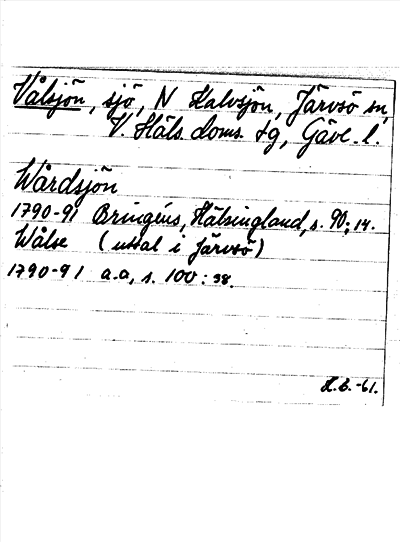 Vålsjön, sjö, N Halvsjön, Järvsö sn,
V. Häls. doms. tg, Gävl. l.
Wårdsjön
1790-91 Bringéus, Hälsingland, s. 90:14.
Wålse (uttal i Järvsö)
1790-91 a.a, s. 100:38.
H.B.-61.